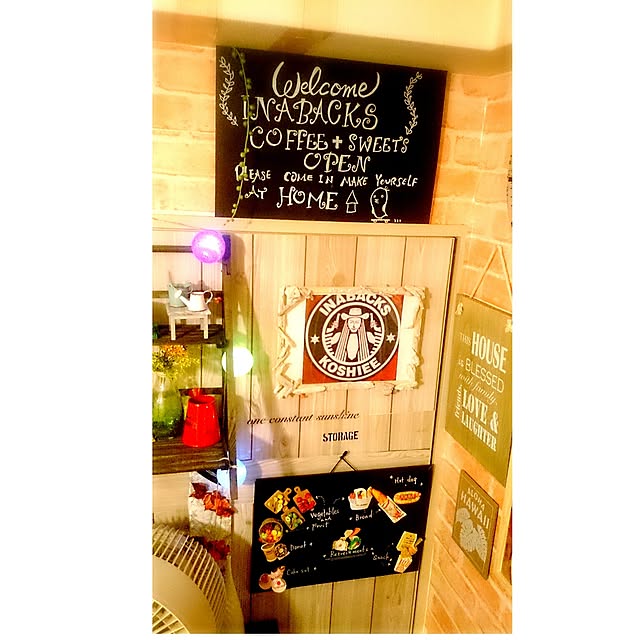 Welcome
INABACKS
COFFEE + SWEETS
OPEN
PLEASE COME IN MAKE YOURSELF
AT HOME
INABACKS
KOSHIEE
THIS
HOUSE
is BLESSED
with family,
friends
LOVE &
LAUGHTER
one constant sunshine
STORAGE
Hot dog
Vegetables
and
Meat
Bread
Donut
Refreshments
Snack
Cake set
ALOHA
HAWAII